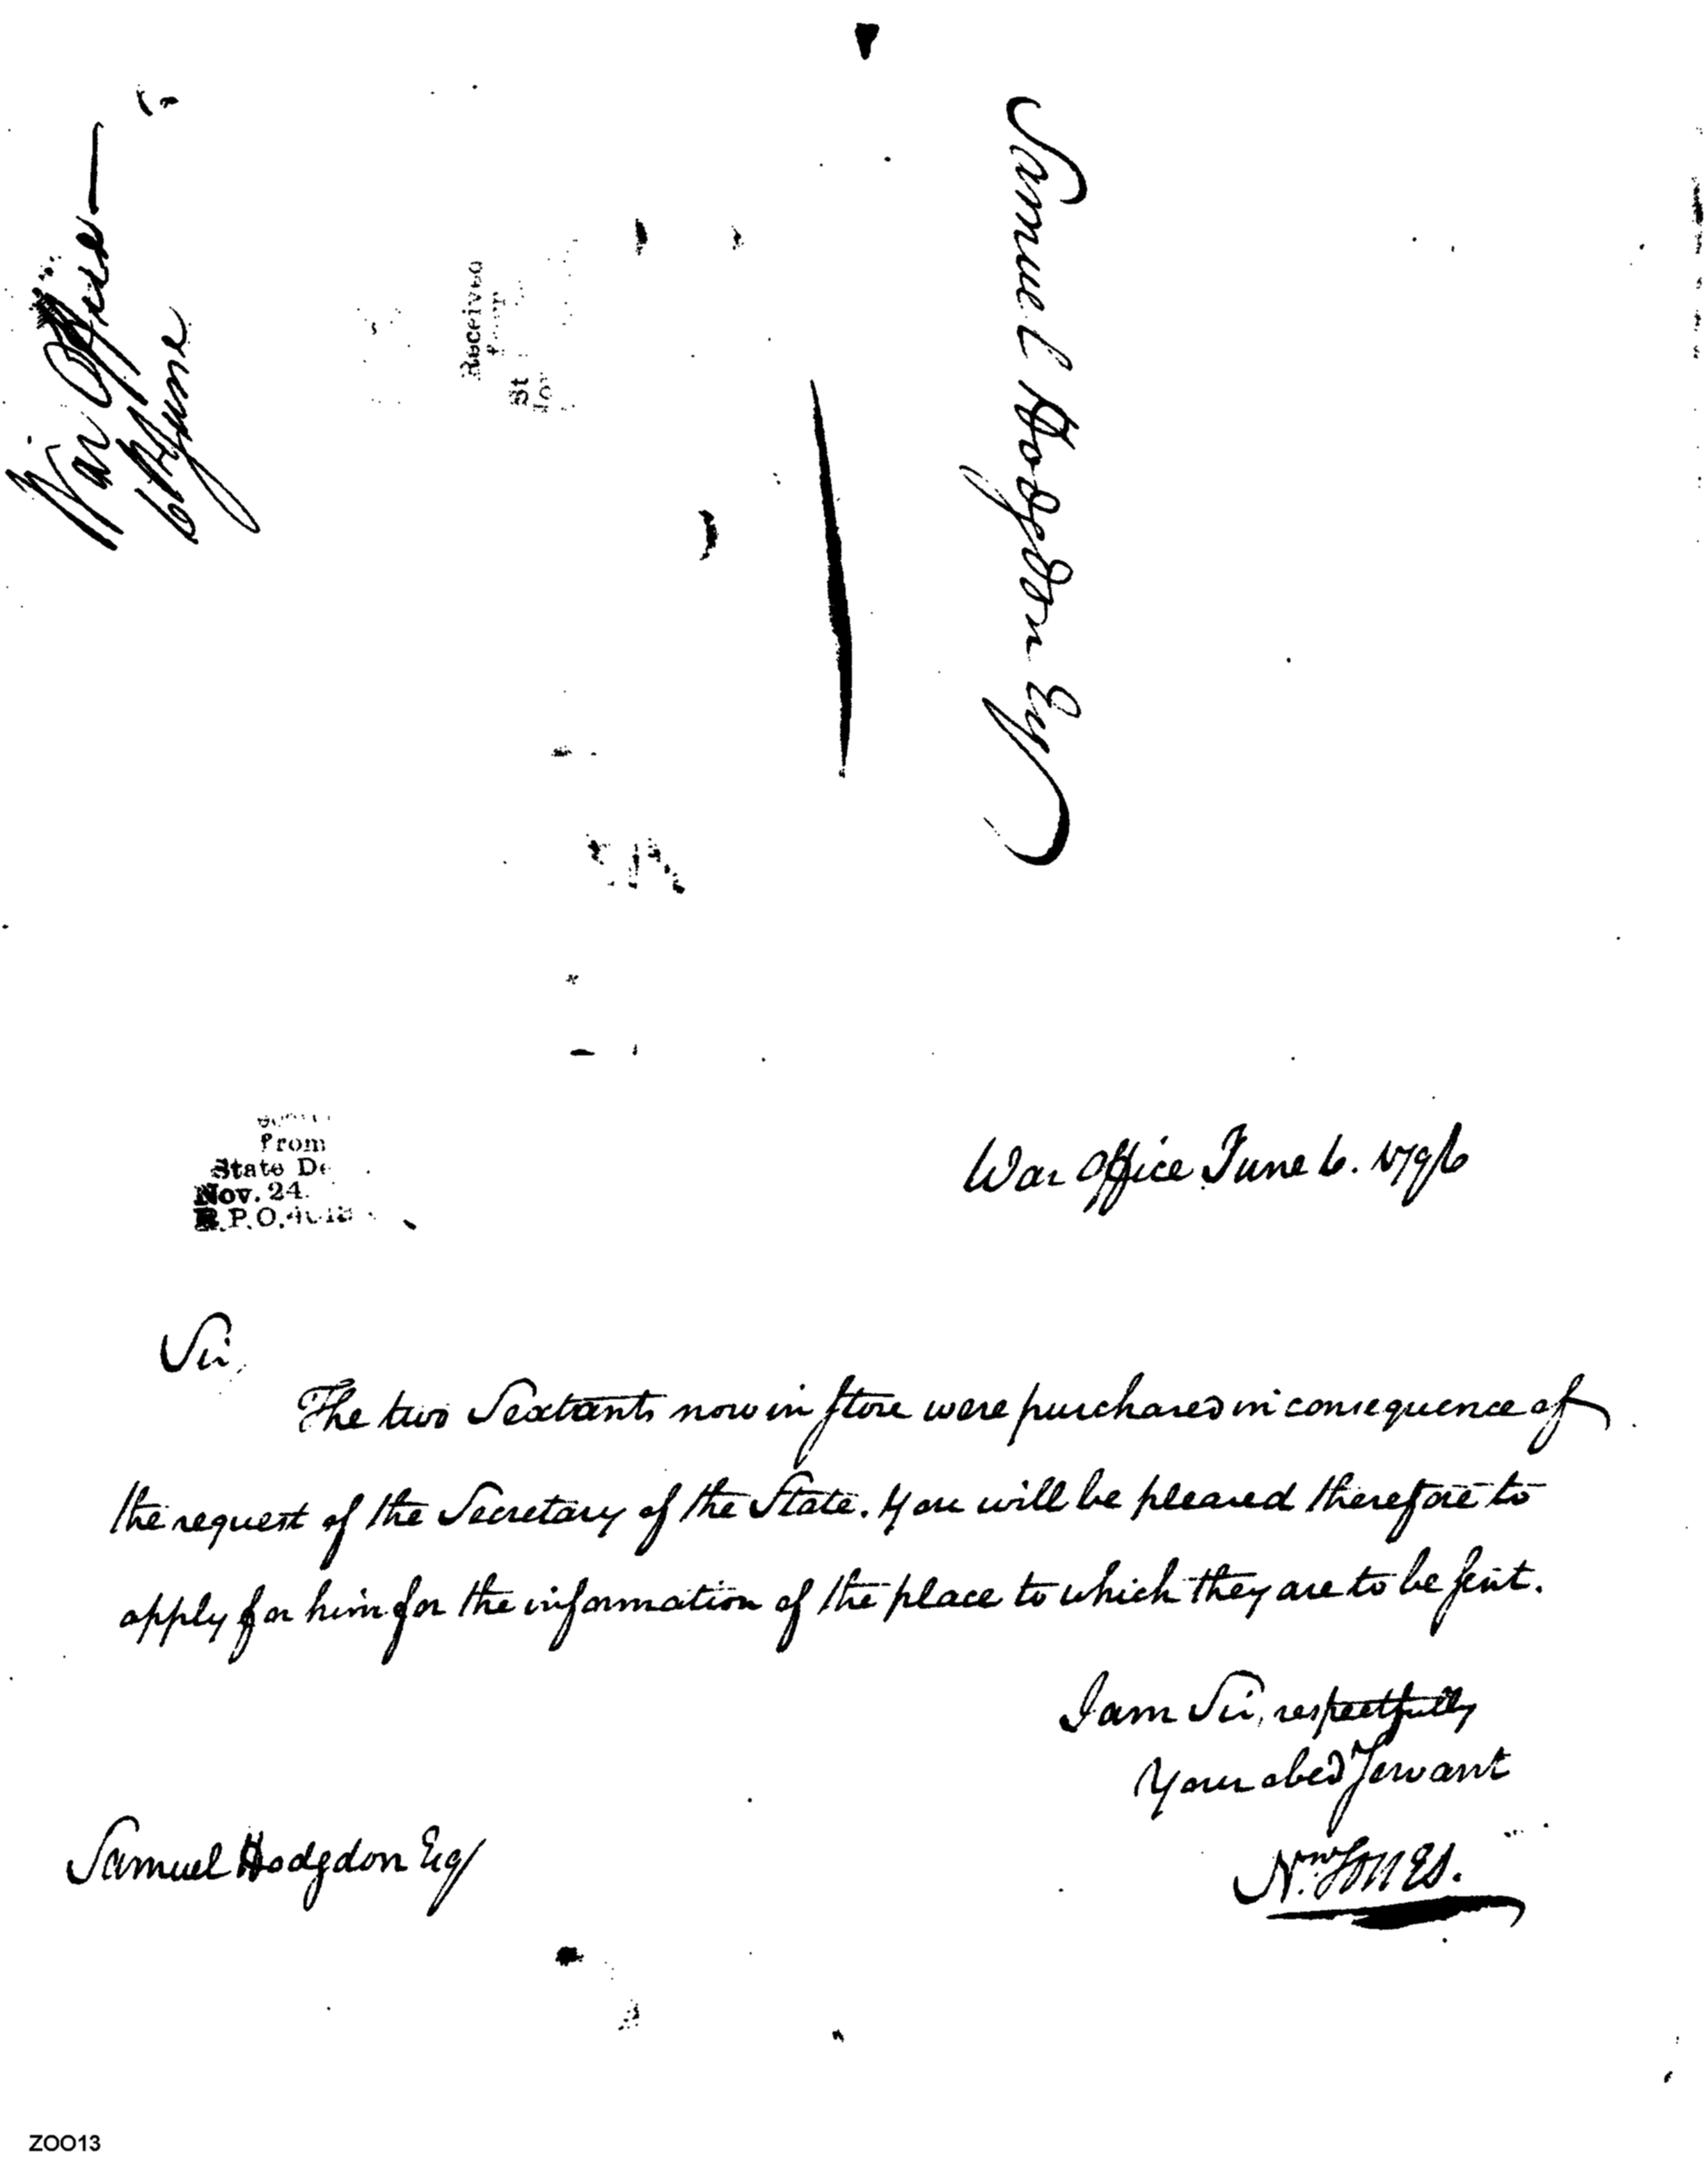 War Office
6th June
Received
Samuel Hodgdon Esq
from
State De
Nov. 24.
R.P.O.
War Office June 6. 1796
Sir,
The two Sextants now in store were purchased in consequence of
the request of the Secretary of the State. You will be pleased therefore to
apply for him for the information of the place to which they are to be sent.
I am Sir, respectfully
Your obed Servant
Samuel Hodgdon Esq
Nw. Jones.
ZOO13